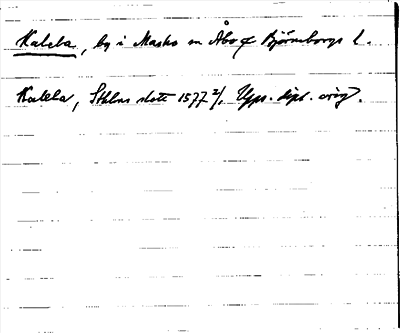 Kaleba, by i Masko sn Åbo o Björneborgs l.
Kaleba, Sthlms slott 1577 2/1 Upps. dipl. orig.